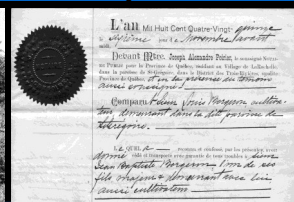 L'an Mil Huit Cent Quatre-Vingt-quinze
le Sixième jour de Novembre avant
midi.
Devant Mtre. Joseph Alexandre Poirier, le soussigné Notai-
re Public pour la Province de Québec, résidant au Village de
dans la paroisse de St-Grégoire, dans le District des Trois-Rivières, susdite
Province de Québec, et en la présence du témoin
aussi soussigné:
Comparu: Sieur Louis Bergeron cultiva-
teur demeurant dans la dite paroisse de
St Grégoire.
LEQUEL a reconnu et confessé, par les présentes, avoir
donné cédé et transporté avec garantie de tous troubles à Sieur
Jean Baptiste Bergeron l'un de ses
fils majeurs demeurant avec lui
aussi cultivateur